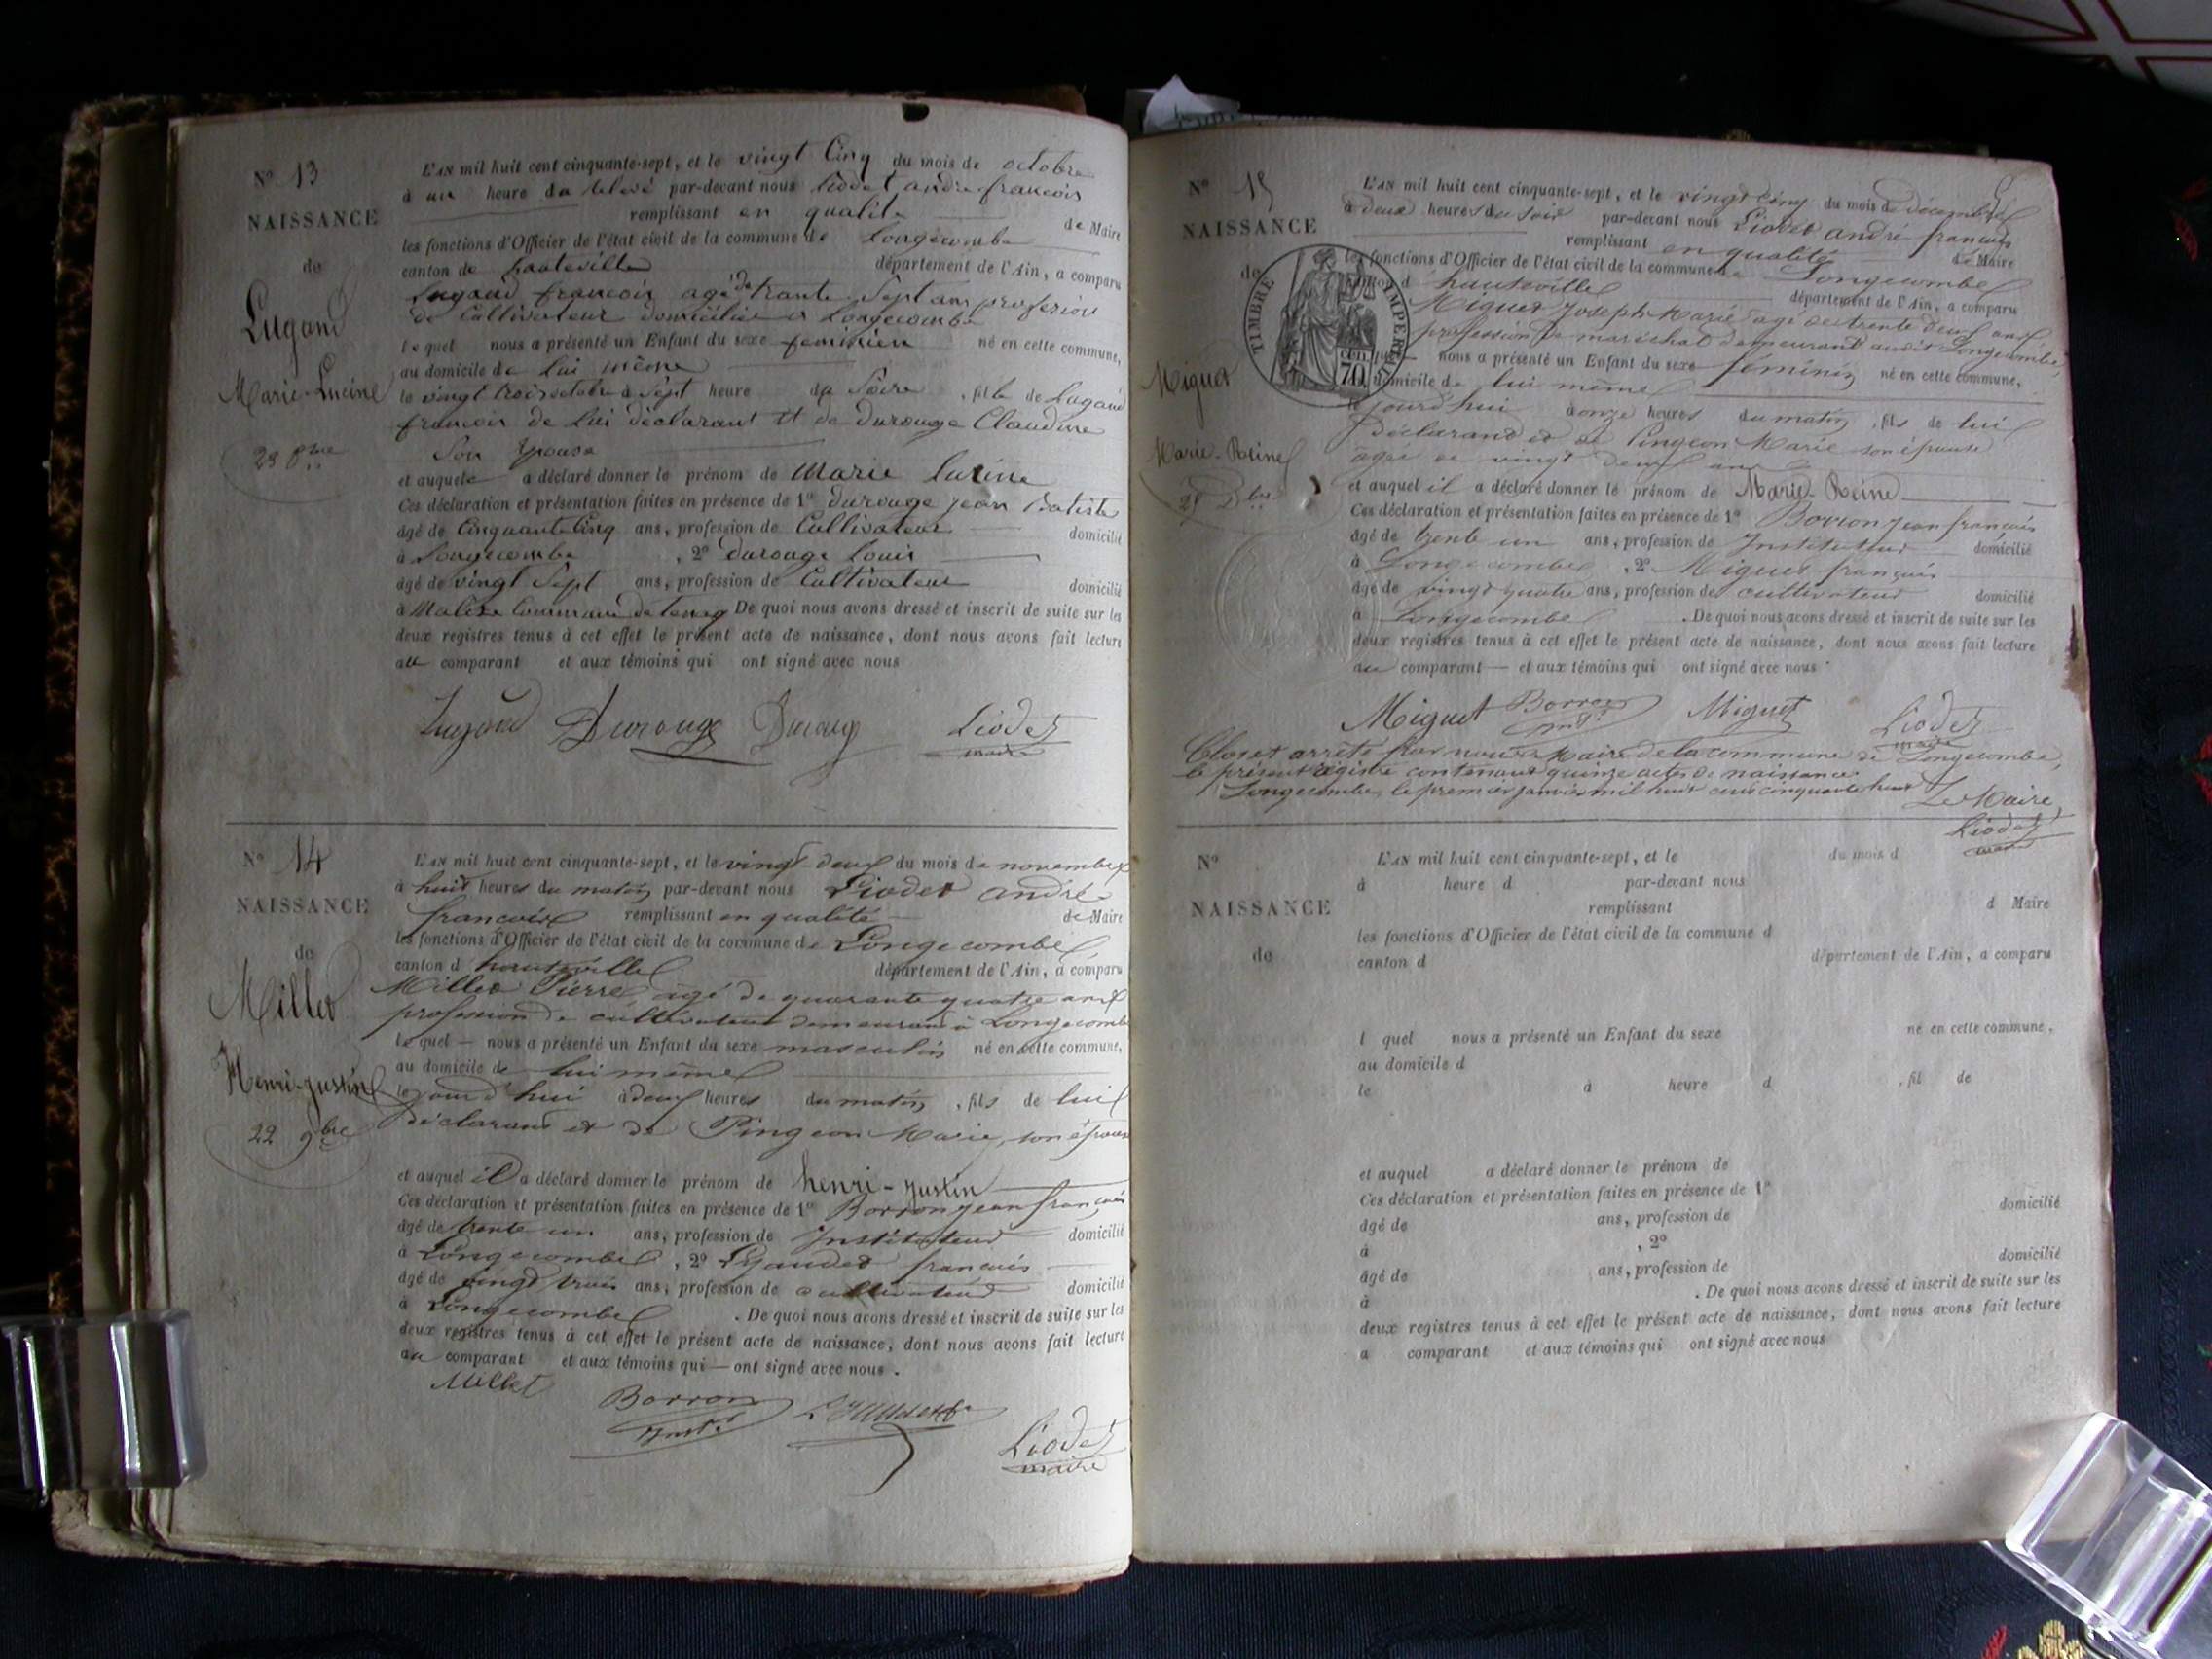 N° 13
NAISSANCE
de
Lugand
Marie-Lucine
23 8bre
L'AN mil huit cent cinquante-sept, et le vingt Cinq du mois de octobre
à un heure du relevé par-devant nous Liodet andre francois
remplissant en qualite de Maire
les fonctions d'Officier de l'état civil de la commune de Longecombe
canton de hauteville département de l'Ain, a comparu
Lugand francois agé de trante Sept ans profession
de Cultivateur domicilié a Longecombe
lequel nous a présenté un Enfant du sexe feminien né en cette commune,
au domicile de lui même
le vingt trois octobre à Sept heure du Soire, fille de Lugand
francois de Lui déclarant et de Durouge Claudine
Son Epouse
et auquele a déclaré donner le prénom de Marie Lucine
Ces déclaration et présentation faites en présence de 1° durouge jean Batiste
âgé de Cinquante Cinq ans, profession de Cultivateur domicilié
à Longecombe, 2° durouge Louis
âgé de vingt Sept ans, profession de Cultivateur domicilié
à commune de De quoi nous avons dressé et inscrit de suite sur les
deux registres tenus à cet effet le présent acte de naissance, dont nous avons fait lecture
au comparant et aux témoins qui ont signé avec nous
Lugand Durouge Durouge Liodet
maire
N° 14
NAISSANCE
de
Millet
Henri-justin
22 9bre
L'AN mil huit cent cinquante-sept, et le vingt deux du mois de novembre
à huit heures du matin par-devant nous Liodet andré
francois remplissant en qualité de Maire
les fonctions d'Officier de l'état civil de la commune de Longecombe
canton d hauteville département de l'Ain, a comparu
Millet Pierre âgé de quarante quatre ans
profession de cultivateur demeurant à Longecombe
lequel — nous a présenté un Enfant du sexe masculin né en cette commune,
au domicile de lui même
le jourd'hui à deux heures du matin, fils de lui
déclarant et de Pingeon Marie, son épouse
et auquel il a déclaré donner le prénom de henri-justin
Ces déclaration et présentation faites en présence de 1° Borron jean françois
âgé de trente un ans, profession de Instituteur domicilié
à Longecombe, 2° françois
âgé de vingt trois ans, profession de cultivateur domicilié
à Longecombe. De quoi nous avons dressé et inscrit de suite sur les
deux registres tenus à cet effet le présent acte de naissance, dont nous avons fait lecture
au comparant et aux témoins qui — ont signé avec nous.
Millet Borron
Inst. Liodet
maire
N° 15
NAISSANCE
de
Miguet
Marie-Reine
25 Dbre
TIMBRE IMPERIAL
70 CEN
L'AN mil huit cent cinquante-sept, et le vingt cinq du mois de décembre
à deux heures du soir par-devant nous Liodet andré françois
remplissant en qualité de Maire
les fonctions d'Officier de l'état civil de la commune de Longecombe
canton d hauteville département de l'Ain, a comparu
Miguet Joseph Marie agé de trente deux ans
profession de maréchal demeurant audit Longecombe,
lequel nous a présenté un Enfant du sexe féminin né en cette commune,
au domicile de lui même
le jourd'hui à onze heures du matin, fils de lui
déclarant et de Pingeon Marie son épouse
âgée de vingt deux ans
et auquel il a déclaré donner le prénom de Marie-Reine
Ces déclaration et présentation faites en présence de 1° Borron jean françois
âgé de trente un ans, profession de Instituteur domicilié
à Longecombe, 2° Miguet françois
âgé de vingt quatre ans, profession de cultivateur domicilié
à Longecombe. De quoi nous avons dressé et inscrit de suite sur les
deux registres tenus à cet effet le présent acte de naissance, dont nous avons fait lecture
au comparant — et aux témoins qui ont signé avec nous.
Miguet Borron Miguet Liodet
inst. maire
Clos et arrêté par nous Maire de la commune de Longecombe,
le présent régistre contenant quinze actes de naissance.
Longecombe, le premier janvier mil huit cent cinquante huit
Le Maire,
Liodet
maire
N°
NAISSANCE
de
L'AN mil huit cent cinquante-sept, et le du mois d
à heure d par-devant nous
remplissant d Maire
les fonctions d'Officier de l'état civil de la commune d
canton d département de l'Ain, a comparu
l quel nous a présenté un Enfant du sexe né en cette commune,
au domicile d
le à heure d, fil de
et auquel a déclaré donner le prénom de
Ces déclaration et présentation faites en présence de 1°
âgé de ans, profession de domicilié
à , 2°
âgé de ans, profession de domicilié
à . De quoi nous avons dressé et inscrit de suite sur les
deux registres tenus à cet effet le présent acte de naissance, dont nous avons fait lecture
a comparant et aux témoins qui ont signé avec nous